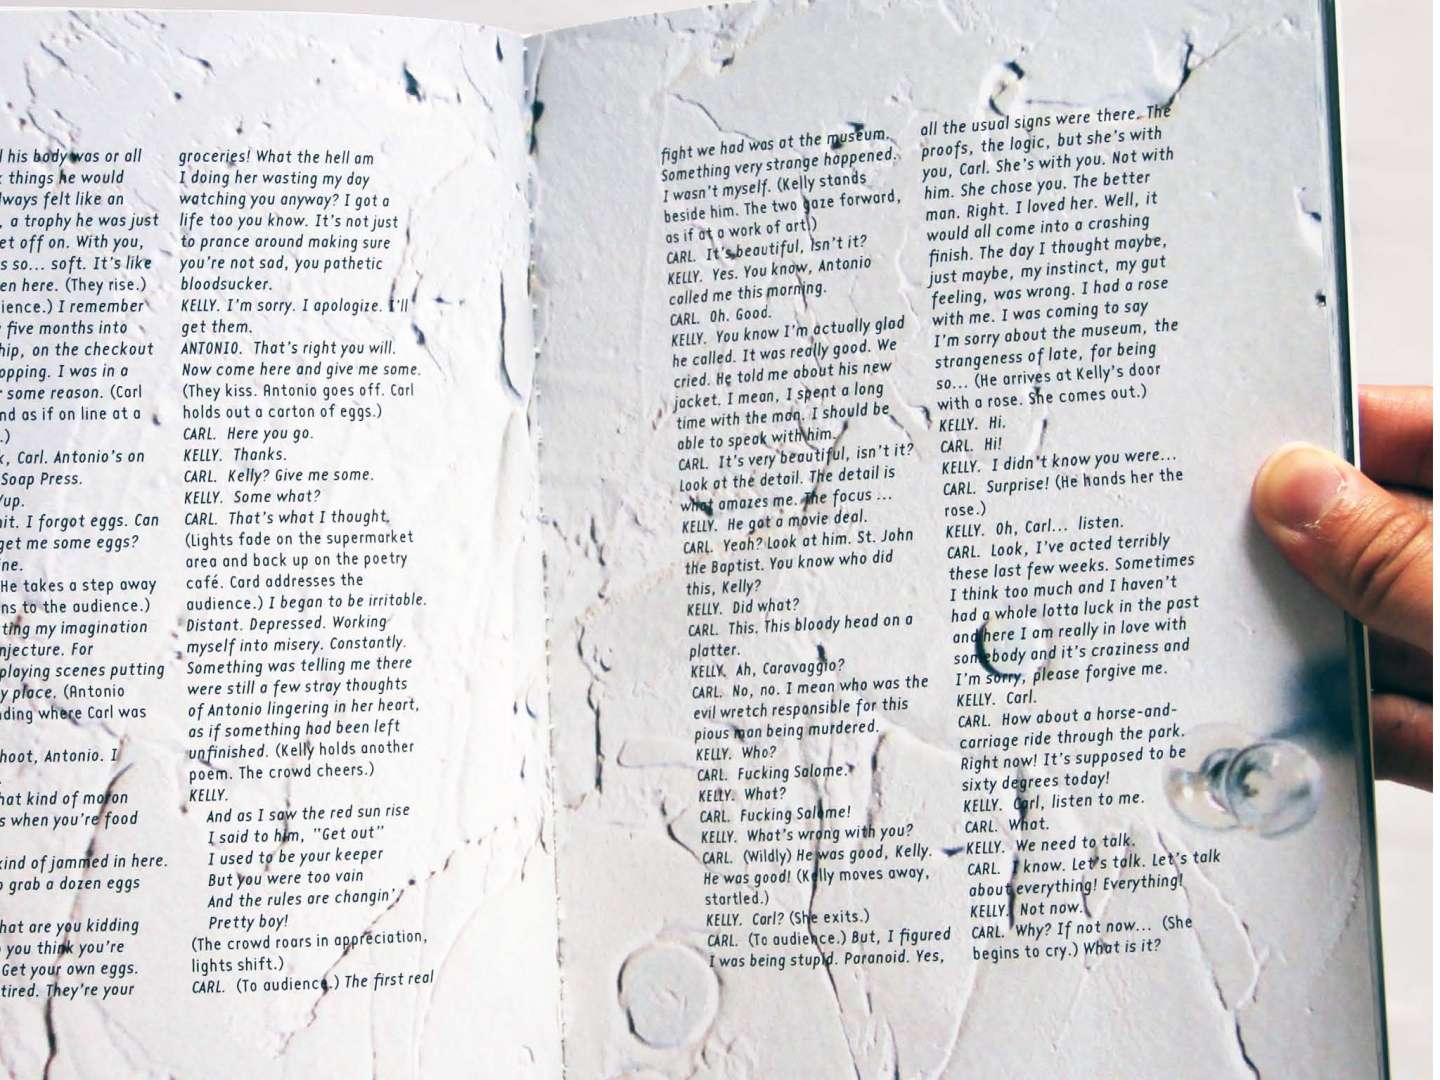 l his body was or all
things he would
lways felt like an
, a trophy he was just
et off on. With you,
s so... soft. It's like
en here. (They rise.)
ience.) I remember
five months into
hip, on the checkout
opping. I was in a
some reason. (Carl
nd as if on line at a
.)
k, Carl. Antonio's on
Soap Press.
Yup.
hit. I forgot eggs. Can
get me some eggs?
ne.
He takes a step away
ns to the audience.)
ting my imagination
njecture. For
playing scenes putting
y place. (Antonio
nding where Carl was
hoot, Antonio. I
hat kind of moron
s when you're food
kind of jammed in here.
o grab a dozen eggs
hat are you kidding
you think you're
Get your own eggs.
tired. They're your
groceries! What the hell am
I doing her wasting my day
watching you anyway? I got a
life too you know. It's not just
to prance around making sure
you're not sad, you pathetic
bloodsucker.
KELLY. I'm sorry. I apologize. I'll
get them.
ANTONIO. That's right you will.
Now come here and give me some.
(They kiss. Antonio goes off. Carl
holds out a carton of eggs.)
CARL. Here you go.
KELLY. Thanks.
CARL. Kelly? Give me some.
KELLY. Some what?
CARL. That's what I thought.
(Lights fade on the supermarket
area and back up on the poetry
café. Card addresses the
audience.) I began to be irritable.
Distant. Depressed. Working
myself into misery. Constantly.
Something was telling me there
were still a few stray thoughts
of Antonio lingering in her heart,
as if something had been left
unfinished. (Kelly holds another
poem. The crowd cheers.)
KELLY.
And as I saw the red sun rise
I said to him, "Get out"
I used to be your keeper
But you were too vain
And the rules are changin'
Pretty boy!
(The crowd roars in appreciation,
lights shift.)
CARL. (To audience.) The first real
fight we had was at the museum.
Something very strange happened.
I wasn't myself. (Kelly stands
beside him. The two gaze forward,
as if at a work of art.)
CARL. It's beautiful, isn't it?
KELLY. Yes. You know, Antonio
called me this morning.
CARL. Oh. Good.
KELLY. You know I'm actually glad
he called. It was really good. We
cried. He told me about his new
jacket. I mean, I spent a long
time with the man. I should be
able to speak with him.
CARL. It's very beautiful, isn't it?
Look at the detail. The detail is
what amazes me. The focus ...
KELLY. He got a movie deal.
CARL. Yeah? Look at him. St. John
the Baptist. You know who did
this, Kelly?
KELLY. Did what?
CARL. This. This bloody head on a
platter.
KELLY. Ah, Caravaggio?
CARL. No, no. I mean who was the
evil wretch responsible for this
pious man being murdered.
KELLY. Who?
CARL. Fucking Salome.
KELLY. What?
CARL. Fucking Salome!
KELLY. What's wrong with you?
CARL. (Wildly) He was good, Kelly.
He was good! (Kelly moves away,
startled.)
KELLY. Carl? (She exits.)
CARL. (To audience.) But, I figured
I was being stupid. Paranoid. Yes,
all the usual signs were there. The
proofs, the logic, but she's with
you, Carl. She's with you. Not with
him. She chose you. The better
man. Right. I loved her. Well, it
would all come into a crashing
finish. The day I thought maybe,
just maybe, my instinct, my gut
feeling, was wrong. I had a rose
with me. I was coming to say
I'm sorry about the museum, the
strangeness of late, for being
so... (He arrives at Kelly's door
with a rose. She comes out.)
KELLY. Hi.
CARL. Hi!
KELLY. I didn't know you were...
CARL. Surprise! (He hands her the
rose.)
KELLY. Oh, Carl... listen.
CARL. Look, I've acted terribly
these last few weeks. Sometimes
I think too much and I haven't
had a whole lotta luck in the past
and here I am really in love with
somebody and it's craziness and
I'm sorry, please forgive me.
KELLY. Carl.
CARL. How about a horse-and-
carriage ride through the park.
Right now! It's supposed to be
sixty degrees today!
KELLY. Carl, listen to me.
CARL. What.
KELLY. We need to talk.
CARL. I know. Let's talk. Let's talk
about everything! Everything!
KELLY. Not now.
CARL. Why? If not now... (She
begins to cry.) What is it?